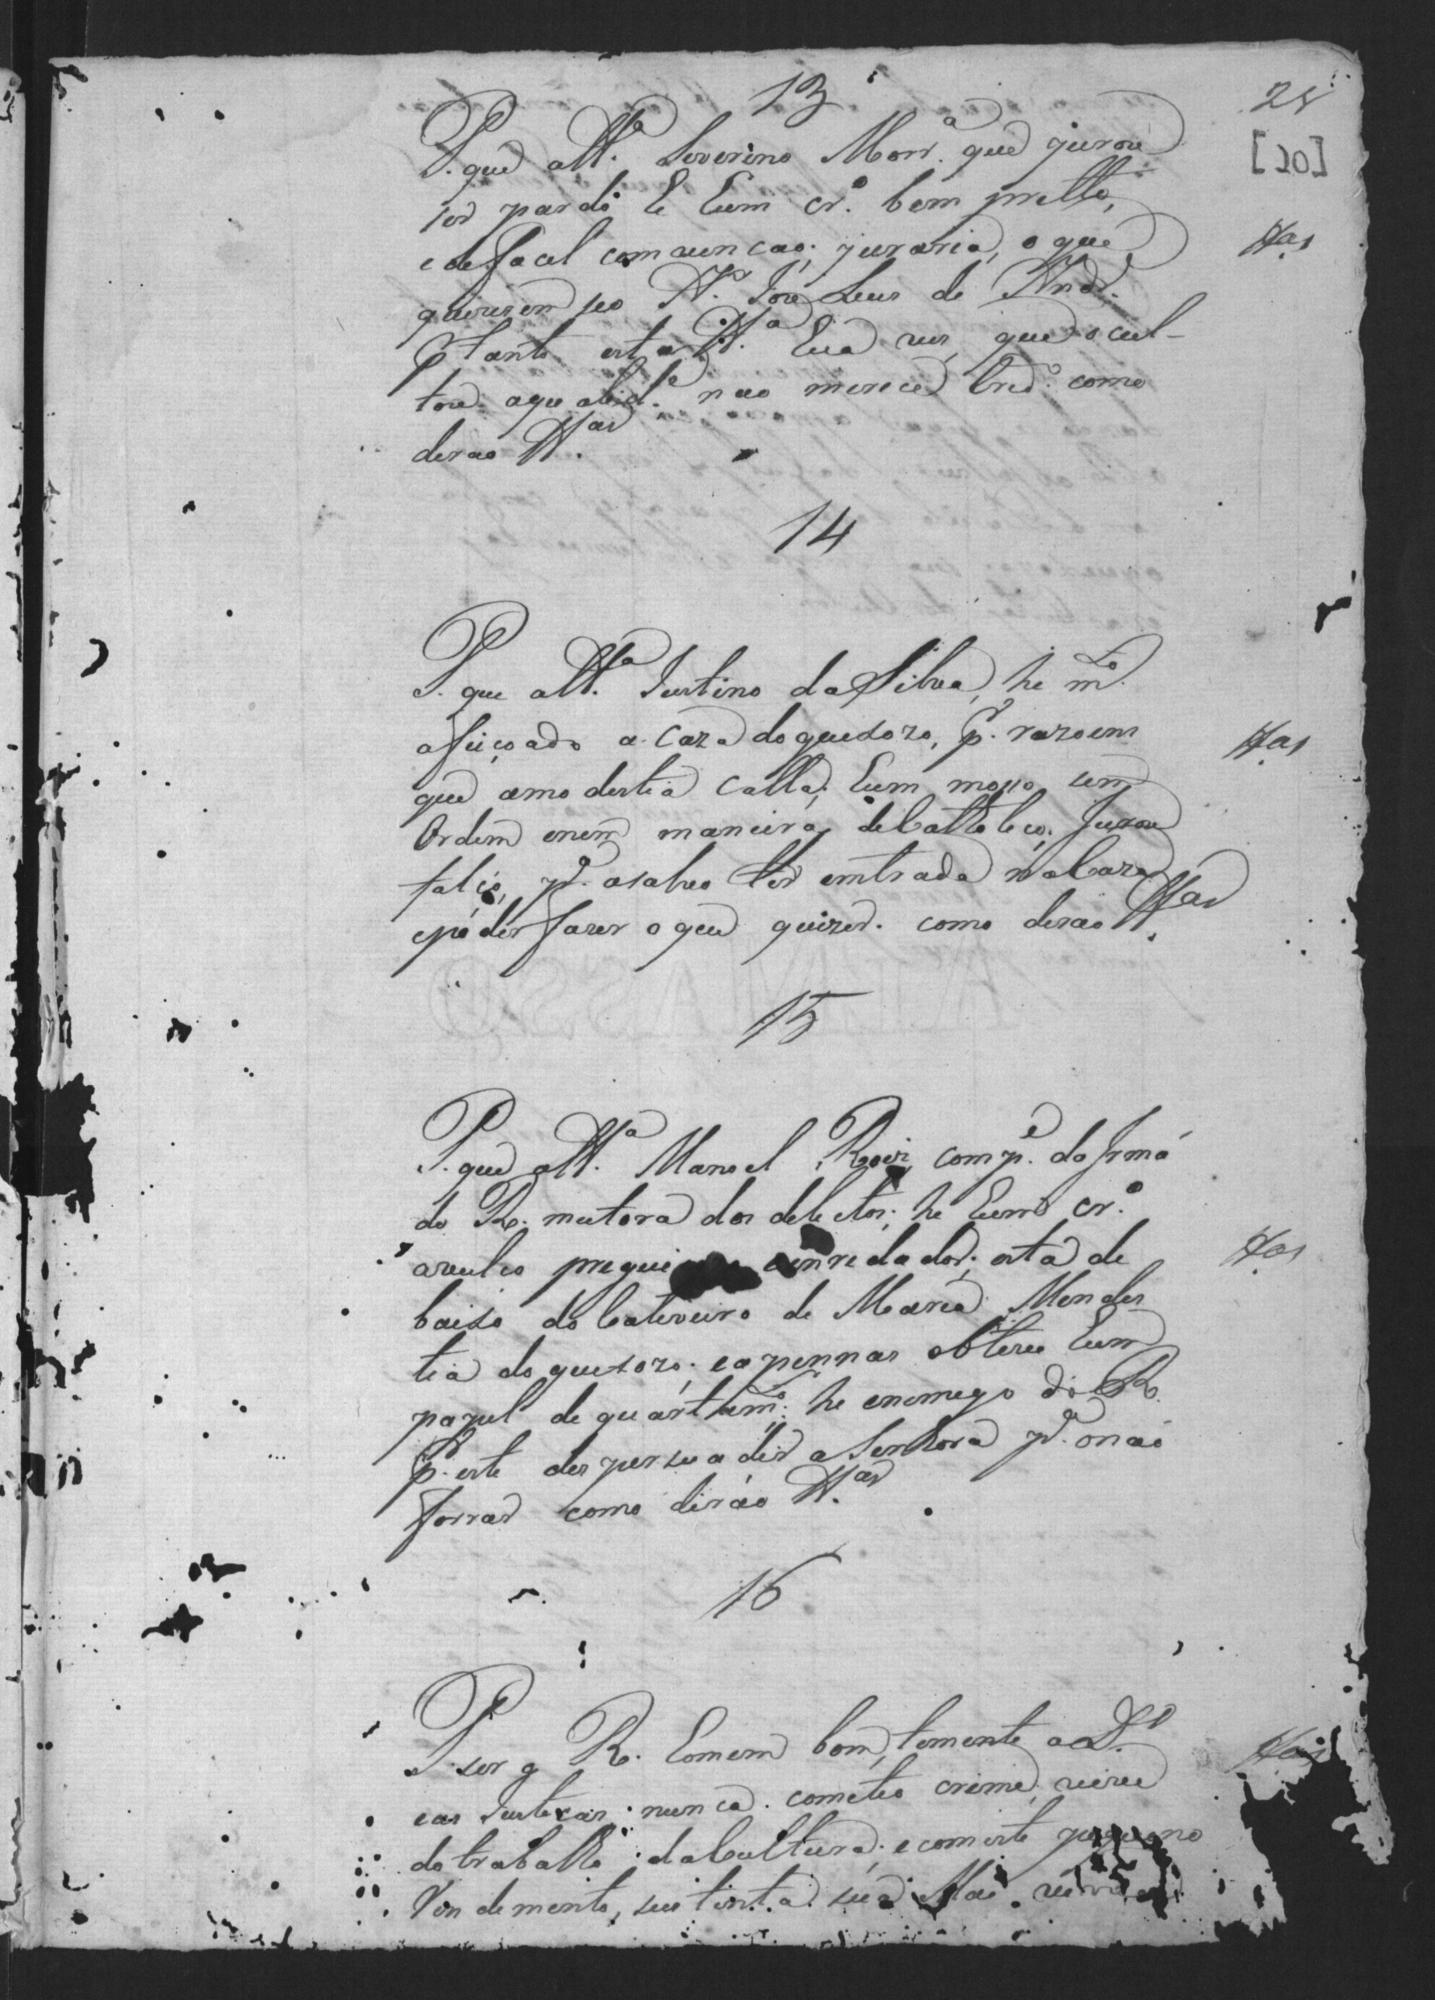 13
28
[20]
P. que a tt.ª Severino Monr.ª que jurou
ser pardo he hum cr.º bem pretto,
e de facil comvencao; juraria, o que
Ttas
quizesem seo P.º Jose Luis de Andr.
p.r tanto esta tt.ª huã ves, que ocul-
tou aqualid.e nao merece Cred.º como
derao tt.as
14
P. que a tt.ª Justino da Silva, he m.to
afeiçoado a Caza do queixozo, p.r razoens
Ttas
que amodestia Calla; hum moço sem
Ordem enem maneira de Catholico. Jurou
falço, p.ª asahio ter emtrada na Caza
epoder fazer o que quizer. como derao tt.as
15
P. que a tt.ª Manoel Roiz comp.e da Irmã
do R. motora dos delictos; he hum cr.º
Ttas
preguei enredador; esta de
baixo do Cativeiro de Maria Mendes
tia do queixozo; e apennas obteve hum
papel de quartam.to; he enemego do R.
p.r este despersuadir a Senhora p.ª onaó
forrar como diráo tt.as
16
P. ser q R. homem bom, temente a D.s
Ttas
eas Justicas; nunca cometeo crime; vive
do trabalho da Cultura; e com este pequeno
Ven demento, sustenta sua Mai